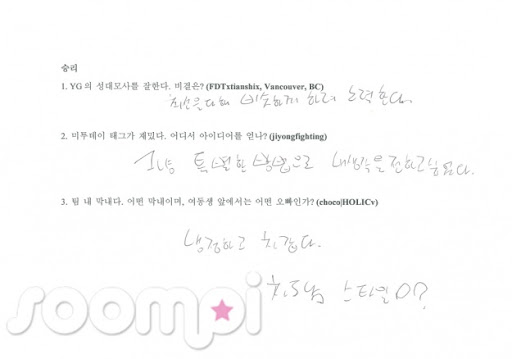 승리
1. YG의 성대모사를 잘한다. 비결은? (FDTxtianshix, Vancouver, BC)
최선을다해 비슷하게 하려 노력한다.
2. 미투데이 태그가 재밌다. 어디서 아이디어를 얻나? (jiyongfighting)
그냥 특별한 방법으로 내생각을전하고싶었다.
3. 팀 내 막내다. 어떤 막내이며, 여동생 앞에서는 어떤 오빠인가? (choco|HOLICv)
냉정하고 치
스타일
soompi